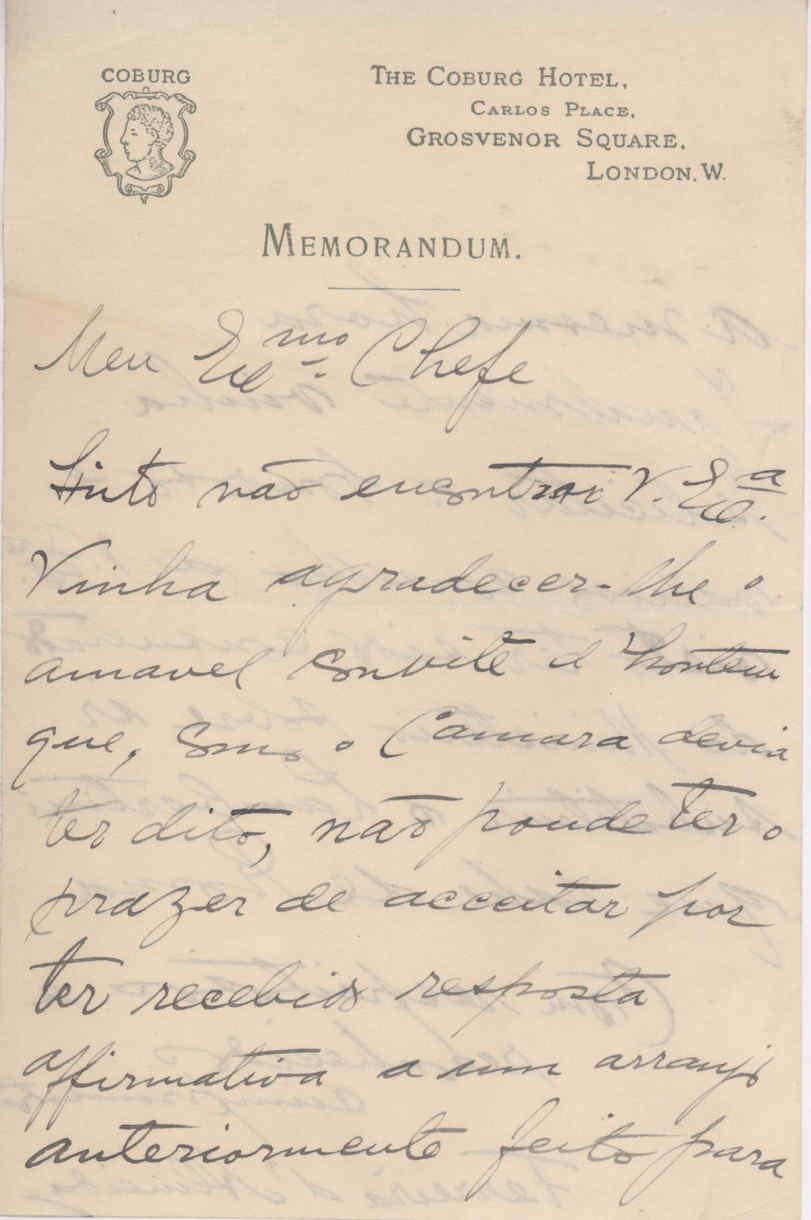 COBURG
THE COBURG HOTEL,
CARLOS PLACE,
GROSVENOR SQUARE,
LONDON. W.
MEMORANDUM.
Meu Exmo. Chefe
Sinto não encontrar V. Exa.
Vinha agradecer-lhe o
amavel convite d'hontem
que, como o Camara devia
ter dito, não poude ter o
prazer de acceitar por
ter recebido resposta
affirmativa a um arranjo
anteriormente feito para